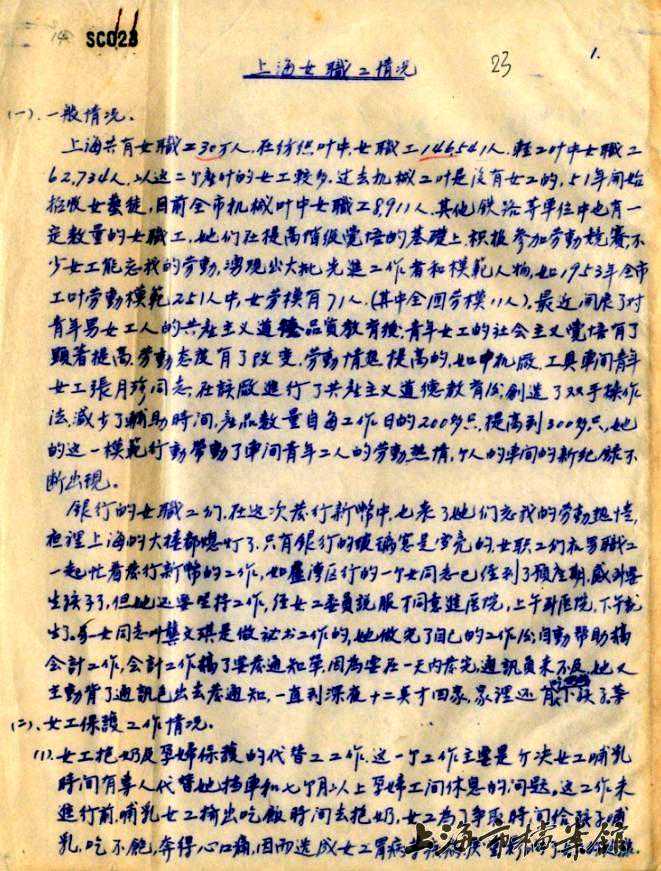 14 SC023
上海女職工情况
23
1.
(一)、一般情况。
上海共有女職工30万人,在紡織叶中,女職工146,541人,輕工叶中女職工
62,734人,以这二个產叶的女工較多。过去机械工叶是没有女工的,51年開始
招收女藝徒,目前全市机械叶中女職工8,911人,其他鉄路等单位中也有一
定数量的女職工,她们在提高階級覺悟的基礎上,积极参加劳動競賽,不
少女工能忘我的劳動,湧現出大批先進工作者和模範人物,如1953年全市
工叶劳動模範251人中,女劳模有71人,(其中全囯劳模11人)。最近開展了对
青年男女工人的共產主义道德品質教育後,青年女工的社会主义覺悟有了
顕著提高,劳動态度有了改变,劳動情緒提高的,如中机廠,工具車间青年
女工張月珍同志,在該廠進行了共產主义道德教育後,創造了双手操作
法,減少了輔助時间,產品数量自每工作日的200多只,提高到300多只,她
的这一模範行動帶動了車间青年工人的劳動热情,个人的車间的新纪録不
断出現。
銀行的女職工们,在这次發行新幣中,也 了她们忘我的劳動热情,
夜裡上海的大樓都熄灯了,只有銀行的玻璃窓是雪亮的,女职工们和男職工
一起忙着發行新幣的工作,如盧湾区行的一个女同志已経到了預產期,感到要
生孩子了,但她还要坚持工作,経女工委員説服才同意進医院,上午到医院,下午就
生了。另一女同志叶龔文琪是做祕书工作的,她做完了自己的工作後,自動幇助搞
会計工作,会計工作搞了要發通知单,因為要在一天内發完,通訊員来不及,她又
主動背了通訊包出去發通知,一直到深夜十二点才回家,家裡还有 孩子等
(二)、女工保護工作情况。
(1).女工抱奶及孕婦保護的代替工工作。这一个工作主要是解决女工哺乳
時间有専人代替她档車和七个月以上孕婦工间休息的问題。这工作未
進行前,哺乳女工擠出吃飯時间去抱奶,女工為了争取時间给孩子哺
乳,吃不飽,奔得心口痛,因而造成女工胃病
上海市檔案館